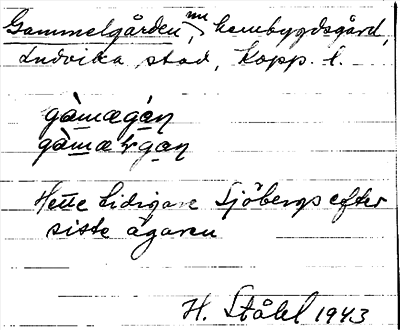 Gammelgården nu, hembygdsgård,
Ludvika stad, Kopp. l.
gàmægán
gàmæ gan
Hette tidigare Sjöbergs efter
siste ägaren
H. Ståhl 1943